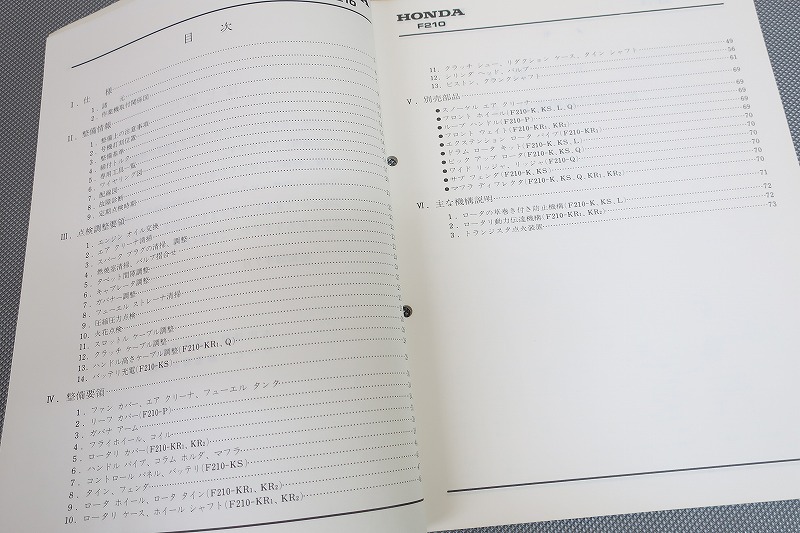 目 次
I. 仕 様
1. 諸 元
2. 作業機取付関係図
II. 整備情報
1. 整備上の注意事項
2. 号機打刻位置
3. 整備基準
4. 締付トルク
5. 専用工具一覧
6. ワイヤリング図
7. 配線図
8. 故障診断
9. 定期点検時期
III. 点検調整要領
1. エンジン オイル交換
2. エア クリーナ清掃
3. スパーク プラグの清掃、調整
4. 燃焼室清掃、バルブ摺合せ
5. タペット間隙調整
6. キャブレータ調整
7. ガバナー調整
8. フューエル ストレーナ清掃
9. 圧縮圧力点検
10. 火花点検
11. スロットル ケーブル調整
12. クラッチ ケーブル調整
13. ハンドル高さケーブル調整(F210-KR₁、Q)
14. バッテリ充電(F210-KS)
IV. 整備要領
1. ファン カバー、エア クリーナ、フューエル タンク
2. リーフ カバー(F210-P)
3. ガバナ アーム
4. フライホイール、コイル
5. ロータリ カバー(F210-KR₁、KR₂)
6. ハンドル パイプ、コラム ホルダ、マフラ
7. コントロール パネル、バッテリ(F210-KS)
8. タイン、フェンダ
9. ロータ ホイール、ロータ タイン(F210-KR₁、KR₂)
10. ロータリ ケース、ホイール シャフト(F210-KR₁、KR₂)
HONDA
F210
11. クラッチ シュー、リダクション ケース、タイン シャフト 49
12. シリンダ ヘッド、バルブ 56
13. ピストン、クランクシャフト 61
V. 別売部品 69
●スノーケル エア クリーナ 69
●フロント ホイール(F210-K、KS、L、Q) 69
●ループ ハンドル(F210-P) 69
●フロント ウェイト(F210-KR₁、KR₂) 70
●エクステンション ロータ パイプ(F210-KR₁) 70
●ドラム ロータ キット(F210-K、KS、L) 70
●ピック アップ ロータ(F210-K、KS、Q) 70
●ワイド リッジャ、リッジャ(F210-Q) 70
●サブ フェンダ(F210-K、KS) 70
●マフラ ディフレクタ(F210-K、KS、Q、KR₁、KR₂) 71
VI. 主な機構説明 72
1. ロータの草巻き付き防止機構(F210-K、KS、L) 72
2. ロータリ動力伝達機構(F210-KR₁、KR₂) 73
3. トランジスタ点火装置